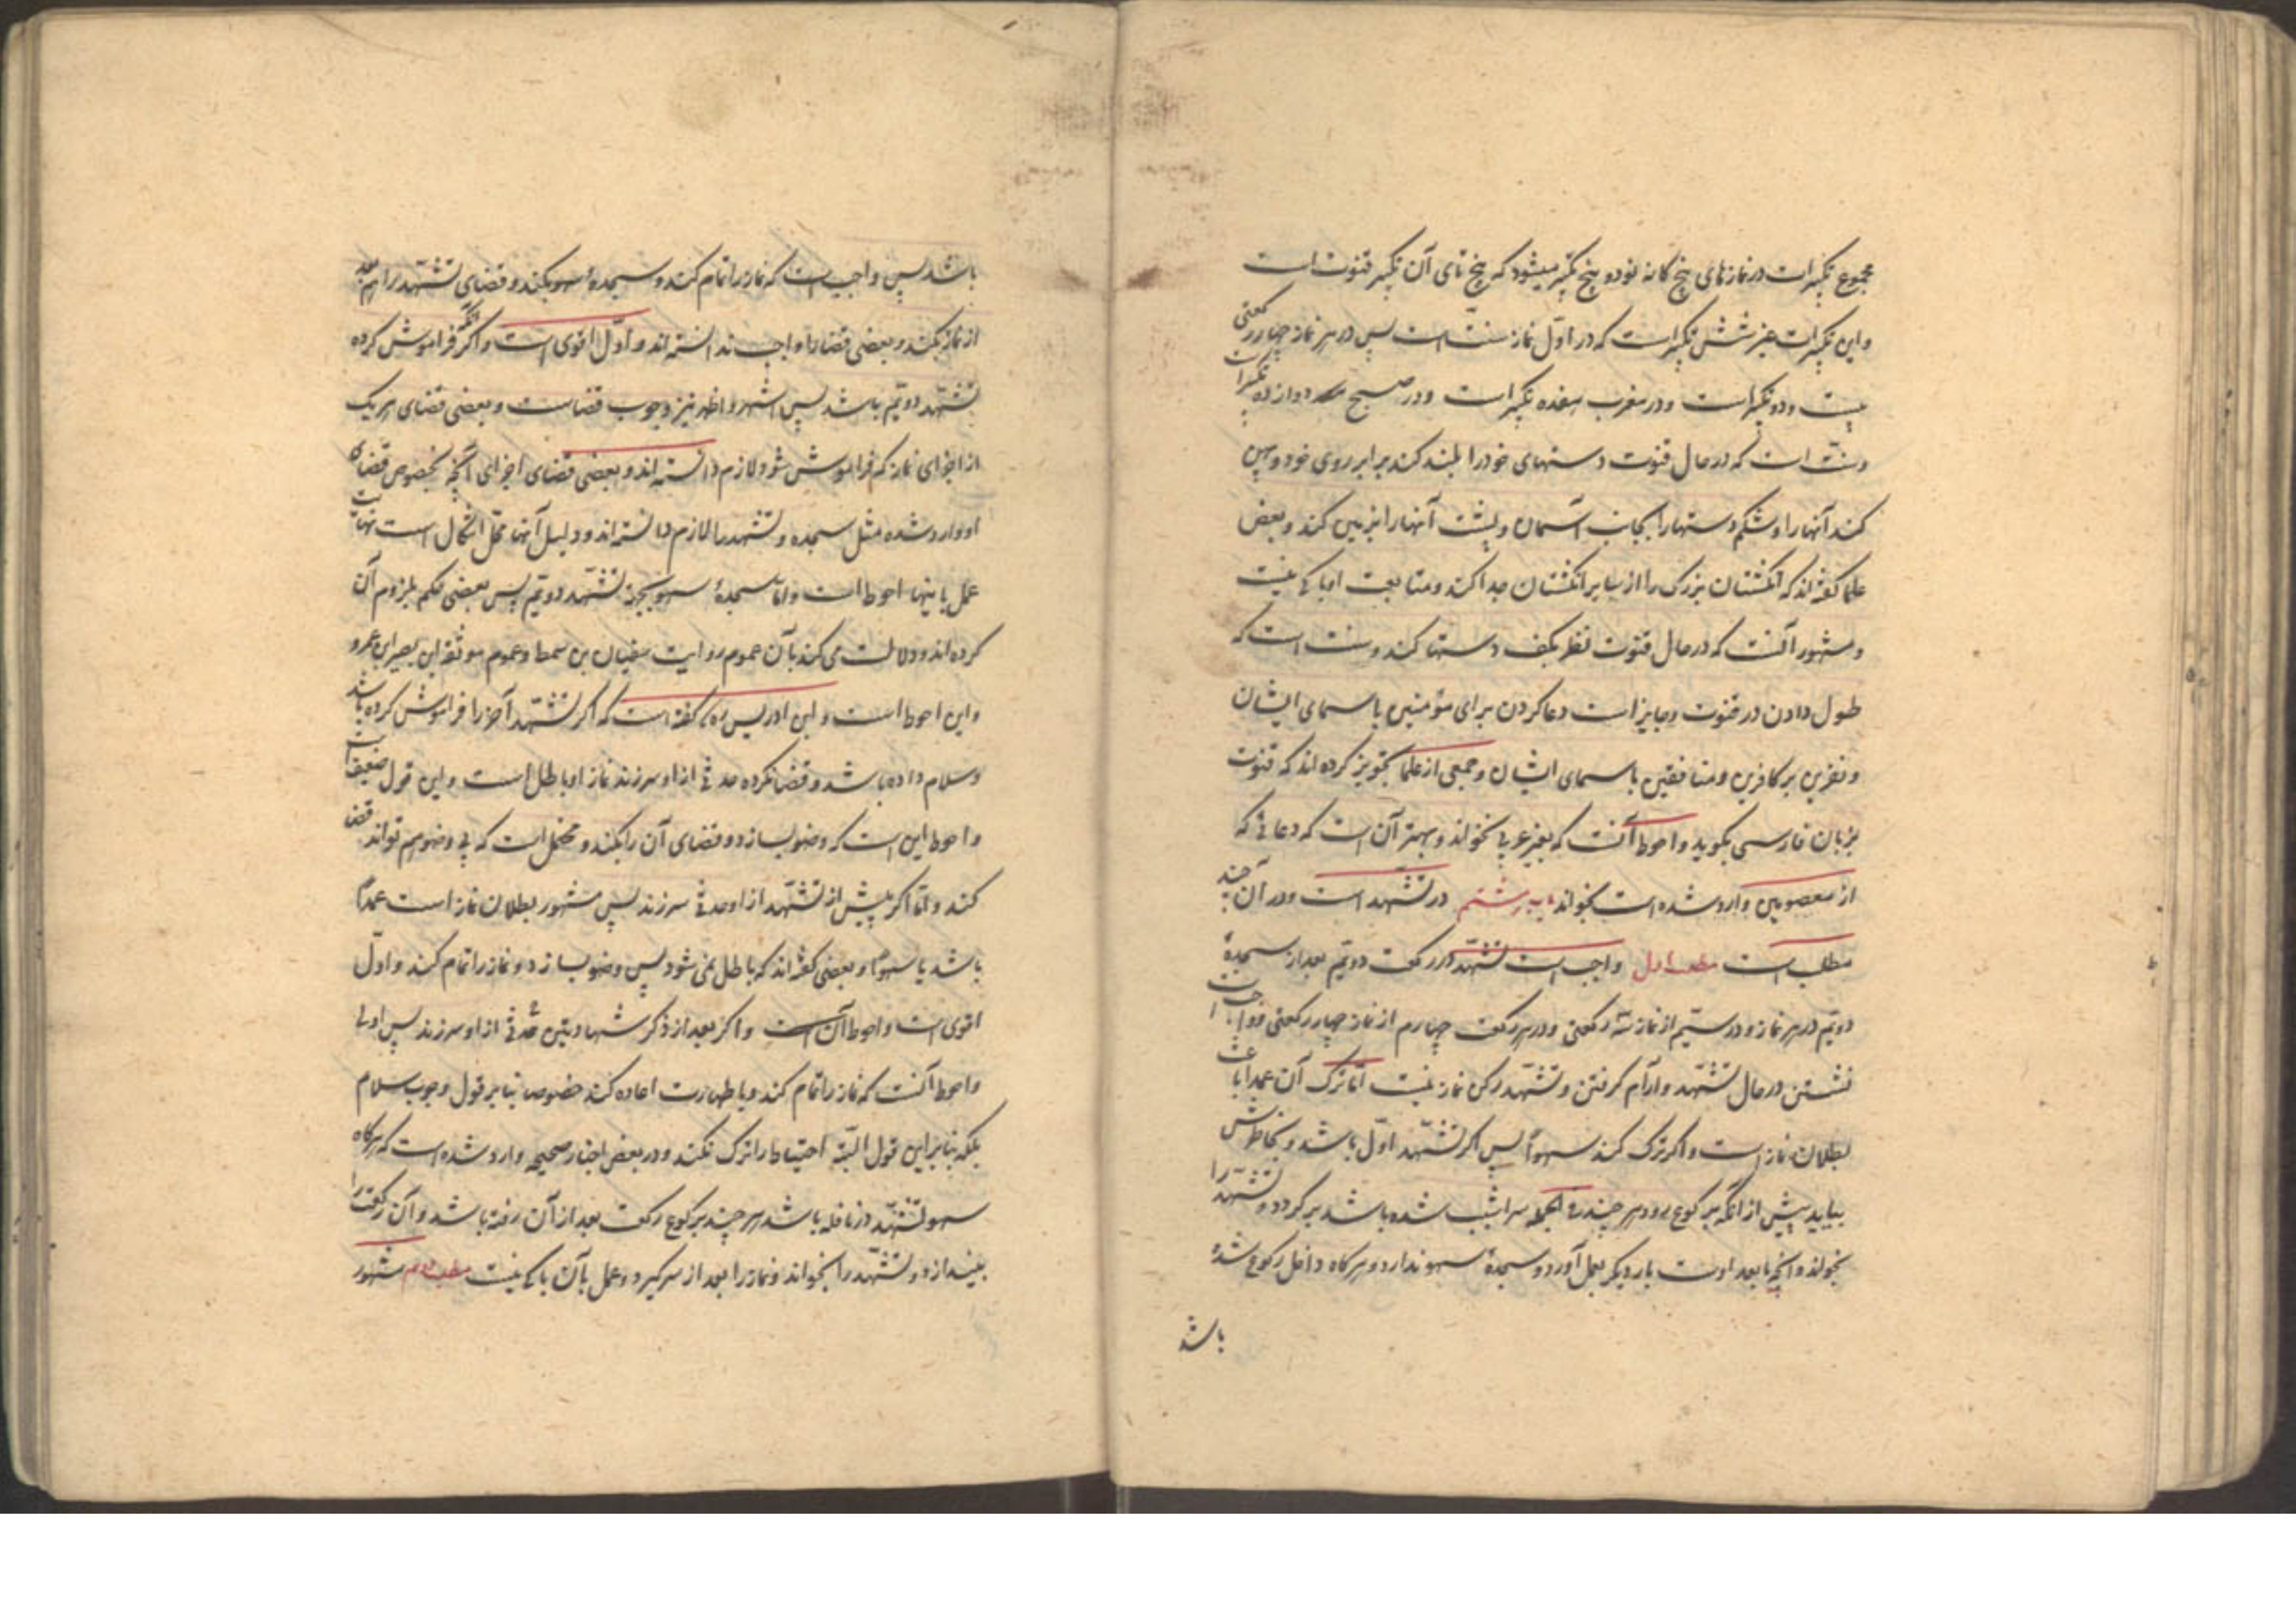 مجموع تکبیرات در نمازهای پنج کانه نود و پنج تکبیر میشود که پنج تای آن تکبیر قنوت است
و این تکبیرات غیر شش تکبیر است که در اول نماز سنت است پس در هر نماز چهار رکعتی
بیست و دو تکبیر است و در مغرب هفده تکبیر است و در صبح دوازده تکبیر است
و سنت است که در حال قنوت دستهای خود را بلند کند برابر روی خود و پهن
کند آنها را و شکم دستها را بجانب آسمان و پشت آنها را بزمین کند و بعض
علما گفته‌اند که انگشتان بزرگ را از سایر انگشتان جدا کند و متابعت او باکی نیست
و مشهور آنست که در حال قنوت نظر بکف دستها کند و سنت است که
طول دادن در قنوت و جایز است دعا کردن برای مؤمنین باسمای ایشان
و نفرین بر کافرین و منافقین باسمای ایشان و جمعی از علما تجویز کرده اند که قنوت
بزبان فارسی بگوید و احوط آنست که بغیر عربی نخواند و بهتر آن است که دعائی که
از معصومین وارد شده است بخواند در تشهد است و در آن چند
مطلب است مطلب اول واجب است تشهد در رکعت دویم بعد از سجدهٔ
دویم در هر نماز و در سیّم از نماز سه رکعتی و در رکعت چهارم از نماز چهار رکعتی و واجب است
نشستن در حال تشهد و آرام کرفتن و تشهد رکن نماز نیست اما ترک آن عمدا باعث
بطلان نماز است و اکر ترک کند سهوًا پس اکر تشهد اول باشد و بخاطرش
بیاید پیش از انکه برکوع رود هر چند سراشیب شده باشد بر کردد و تشهد را
بخواند و آنچه ما بعد اوست بار دیگر بعمل آورد و سجدهٔ سهو ندارد و هر کاه داخل رکوع شده
باشد
باشد پس واجب است که نماز را تمام کند و سجدهٔ سهو بکند و قضای تشهد را هم بعد
از نماز بکند و بعضی قضا را واجب ندانسته اند و اول اقوی است و اکر آنکه فراموش کرده
تشهد دویم باشد پس اشهر و اظهر نیز وجوب قضاست و بعضی قضای هر یک
از اجزای نماز که فراموش شود لازم دانسته اند و بعضی قضای اجزای آنچه بخصوص قضای
او وارد شده مثل سجده و تشهد را لازم دانسته اند و دلیل آنها محل اشکال است نهایت
عمل باینها احوط است و امّا سجدهٔ سهو بجهة تشهد دویم پس بعضی حکم بلزوم آن
کرده اند و دلالت می کند بآن عموم روایت سفیان بن سمط و عموم موثقه ابی بصیر
و این احوط است و ابن ادریس ره گفته است که اکر تشهد آخر را فراموش کرده باشد
و سلام داده باشد و قضا نکرده حدثی از او سر زند نماز او باطل است و این قول ضعیف است
و احوط این است که وضو بسازد و قضای آن را بکند و محتمل است که بی وضو هم تواند قضا
کند و امّا اکر پیش از تشهد از او حدثی سر زند پس مشهور بطلان نماز است عمدًا
باشد یا سهوًا و بعضی گفته‌اند که باطل نمی شود پس وضو بسازد و نماز را تمام کند و اول
اقوی است و احوط آن است و اکر بعد از ذکر شهادتین حدثی از او سر زند پس اولی
و احوط آنست که نماز را تمام کند و با طهارت اعاده کند خصوص بنا بر قول وجوب سلام
بلکه بنا بر این قول البته احتیاط را ترک نکند و در بعض اخبار صحیحه وارد شده است که هرکاه
سهو تشهد در نافله باشد هر چند برکوع رکعت بعد از آن رفته باشد و آن رکعت را
بیندازد و تشهد را بخواند و نماز را بعد از سر کیرد و عمل بآن باکی نیست مطلب دویم مشهور